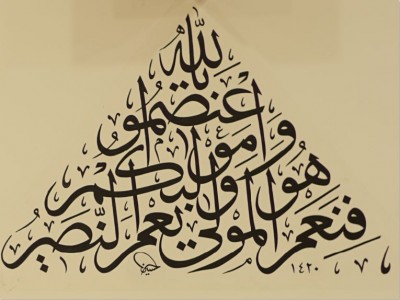 واعتصموا بالله
هو مولاكم
فنعم المولى ونعم النصير
١٤٢٠